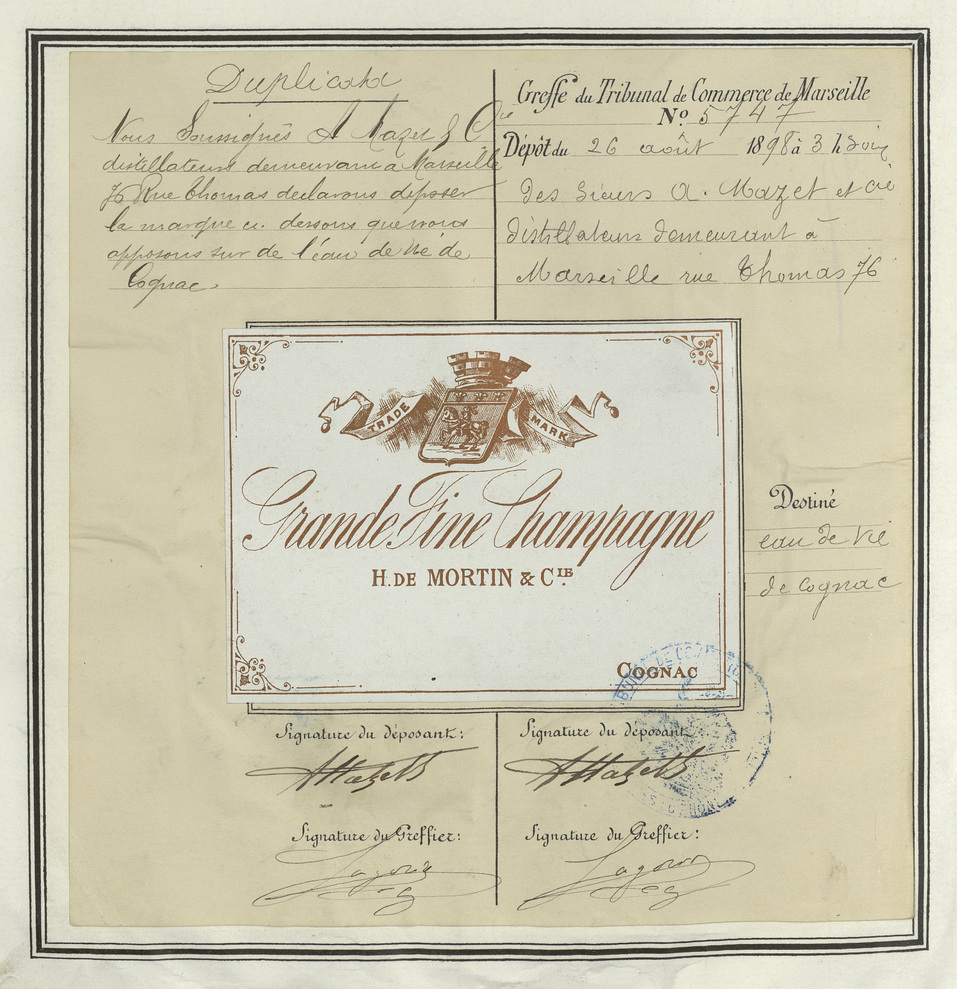 Duplicata
Nous Soussignés A Mazet & Cie
distillateurs demeurant à Marseille
76 Rue Thomas declarons déposer
la marque ci. dessous que nous
apposons sur de l'éau de vie de
Cognac.
Greffe du Tribunal de Commerce de Marseille
No 5747
Dépôt du 26 août 1898 à 3 h soir
Des Sieurs A. Mazet et Cie
distillateurs demeurant à
Marseille rue Thomas 76
TRADE MARK
Grande Fine Champagne
H. DE MORTIN & CIE.
COGNAC
Destiné
eau de vie
de Cognac
Signature du déposant:
AMazet
Signature du déposant
AMazet
Signature du Greffier:
Signature du Greffier: